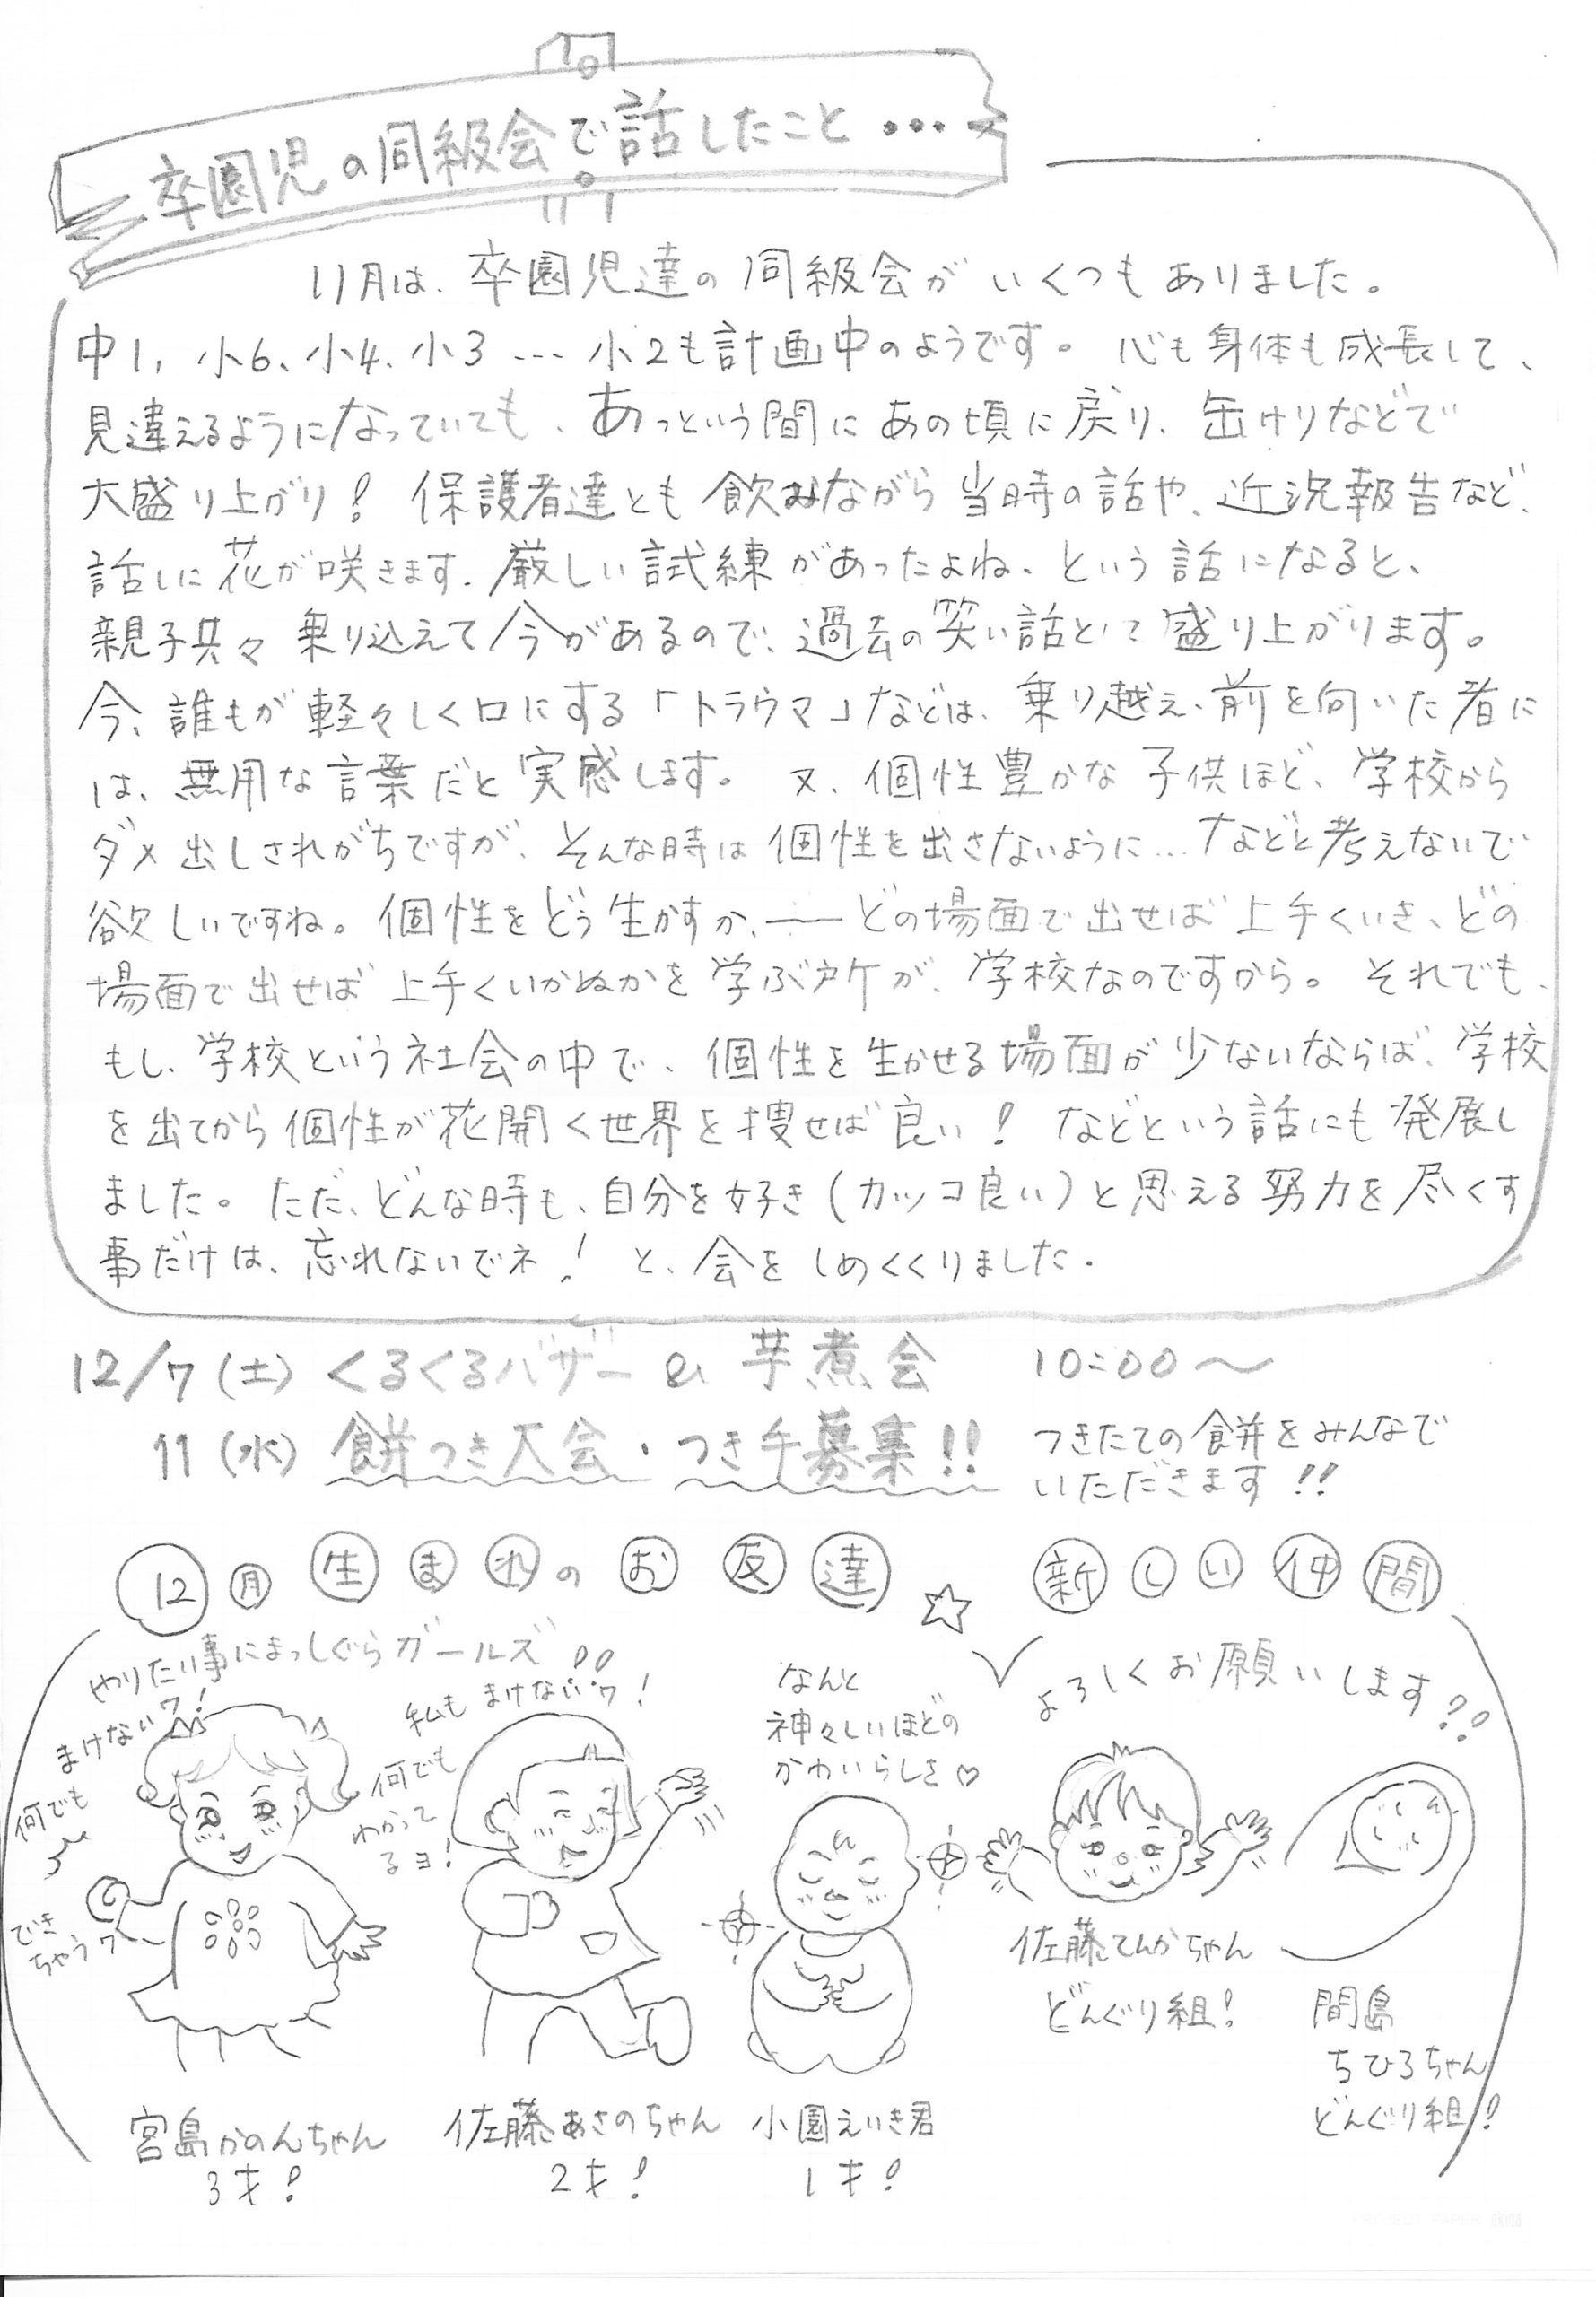 卒園児の同級会で話したこと・・・
11月は、卒園児達の同級会がいくつもありました。
中1、小6、小4、小3…小2も計画中のようです。心も身体も成長して、
見違えるようになっていても、あっという間にあの頃に戻り、缶けりなどで
大盛り上がり!保護者達とも飲みながら当時の話や、近況報告など、
話しに花が咲きます。厳しい試練があったよね、という話になると、
親子共々乗り込えて今があるので、過去の笑い話として盛り上がります。
今、誰もが軽々しく口にする「トラウマ」などは、乗り越え、前を向いた者に
は、無用な言葉だと実感します。又、個性豊かな子供ほど、学校から
ダメ出しされがちですが、そんな時は個性を出さないように…などと考えないで
欲しいですね。個性をどう生かすか、――どの場面で出せば上手くいき、どの
場面で出せば上手くいかぬかを学ぶ所が、学校なのですから。それでも、
もし、学校という社会の中で、個性を生かせる場面が少ないならば、学校
を出てから個性が花開く世界を捜せば良い!などという話にも発展し
ました。ただ、どんな時も、自分を好き(カッコ良い)と思える努力を尽くす
事だけは、忘れないでネ!と、会をしめくくりました。
12/7(土)くるくるバザー&芋煮会 10:00〜
11(水)餅つき大会・つき手募集!! つきたての餅をみんなで
いただきます!!
12月生まれのお友達☆新しい仲間
やりたい事にまっしぐらガールズ!!
まけないワ!
何でも
できちゃうワ
私もまけないワ!
何でも
わかって
るヨ!
なんと
神々しいほどの
かわいらしさ♡
よろしくお願いします!!
宮島かのんちゃん
3才!
佐藤あさのちゃん
2才!
小園えいき君
1才!
佐藤てんかちゃん
どんぐり組!
間島
ちひろちゃん
どんぐり組!